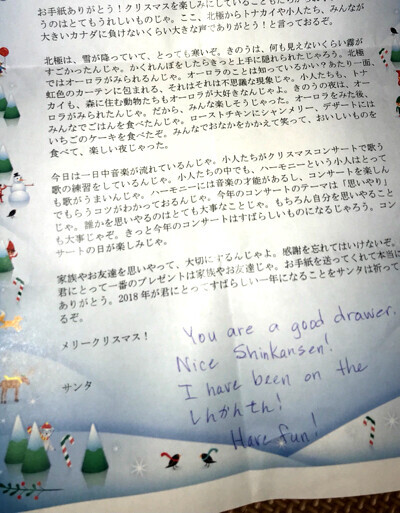 お手紙ありがとう！クリスマスを楽しみにしていることも
うのはとてもうれしいものじゃ。ここ、北極からトナカイや小人たち、みんなが
大きいカナダに負けないくらい大きな声でありがとう！と言っておるぞ。
北極は、雪が降っていて、とっても寒いぞ。きのうは、何も見えないくらい霧が
すごかったんじゃ。かくれんぼをしたらきっと上手に隠れられたじゃろう。北極
ではオーロラがみられるんじゃ。オーロラのことは知っているかい？あたり一面、
虹色のカーテンに包まれる、それはそれは不思議な現象じゃ。小人たちも、トナ
カイも、森に住む動物たちもオーロラが大好きなんじゃよ。きのうの夜は、オー
ロラがみられたんじゃ。だから、みんな楽しそうじゃった。オーロラをみた後、
みんなでごはんを食べたんじゃ。ローストチキンにシャンメリー、デザートには
いちごのケーキを食べたぞ。みんなでおなかをかかえて笑って、おいしいものを
食べて、楽しい夜じゃった。
今日は一日中音楽が流れているんじゃ。小人たちがクリスマスコンサートで歌う
歌の練習をしているんじゃ。小人たちの中でも、ハーモニーという小人はとって
も歌がうまいんじゃ。ハーモニーには音楽の才能があるし、コンサートを楽しん
でもらうコツがわかっておるんじゃ。今年のコンサートのテーマは「思いやり」
じゃ。誰かを思いやるのはとても大事なことじゃ。もちろん自分を思いやること
も大事じゃぞ。きっと今年のコンサートはすばらしいものになるじゃろう。コン
サートの日が楽しみじゃ。
家族やお友達を思いやって、大切にするんじゃよ。感謝を忘れてはいけないぞ。
君にとって一番のプレゼントは家族やお友達じゃ。お手紙を送ってくれて本当に
ありがとう。2018年が君にとってすばらしい一年になることをサンタは祈って
るぞ。
メリークリスマス！
サンタ
You are a good drawer.
Nice Shinkansen!
I have been on the
しんかんせん!
Have fun!